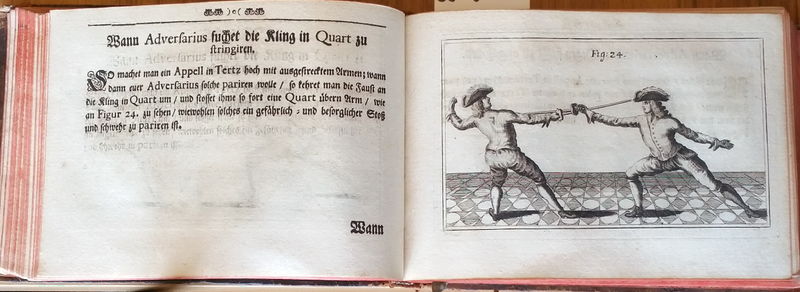 Wann Adversarius suchet die Kling in Quart zu
stringiren.
So machet man ein Appell in Tertz hoch mit ausgestrecktem Armen; wann
dann euer Adversarius solche pariren wolte / so kehret man die Faust an
die Kling in Quart um / und stosset ihme so fort eine Quart übern Arm / wie
an Figur 24. zu sehen / wiewohlen solches ein gefährlich- und besorglicher Stoß
und schwehr zu pariren ist.
Wann
Fig: 24.